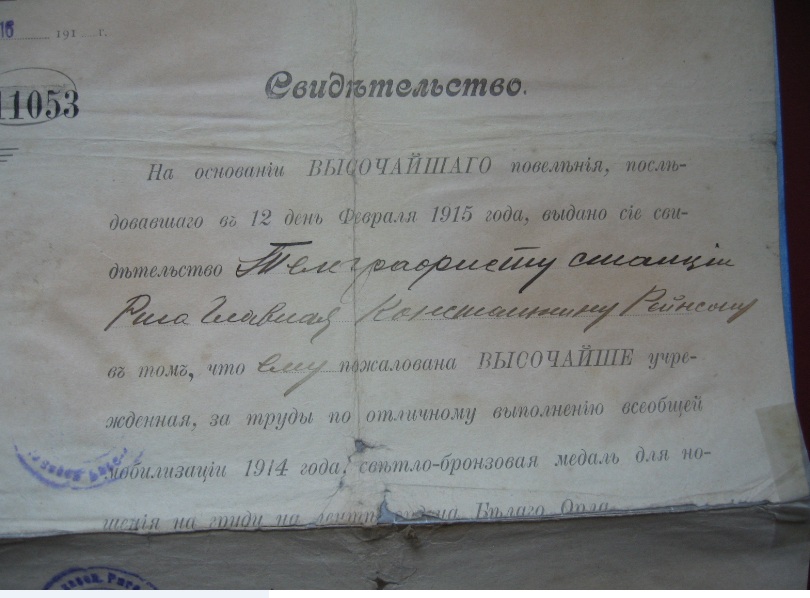 16 191 г.
11053
Свидѣтельство.
На основаніи ВЫСОЧАЙШАГО повелѣнія, послѣ-
довавшаго въ 12 день Февраля 1915 года, выдано сіе сви-
дѣтельство Телеграфисту станціи
Рига Главная Константину Рейнсону
въ томъ, что ему пожалована ВЫСОЧАЙШЕ учре-
жденная, за труды по отличному выполненію всеобщей
мобилизаціи 1914 года, свѣтло-бронзовая медаль для но-
шенія на груди на лентѣ ордена Бѣлаго Орла